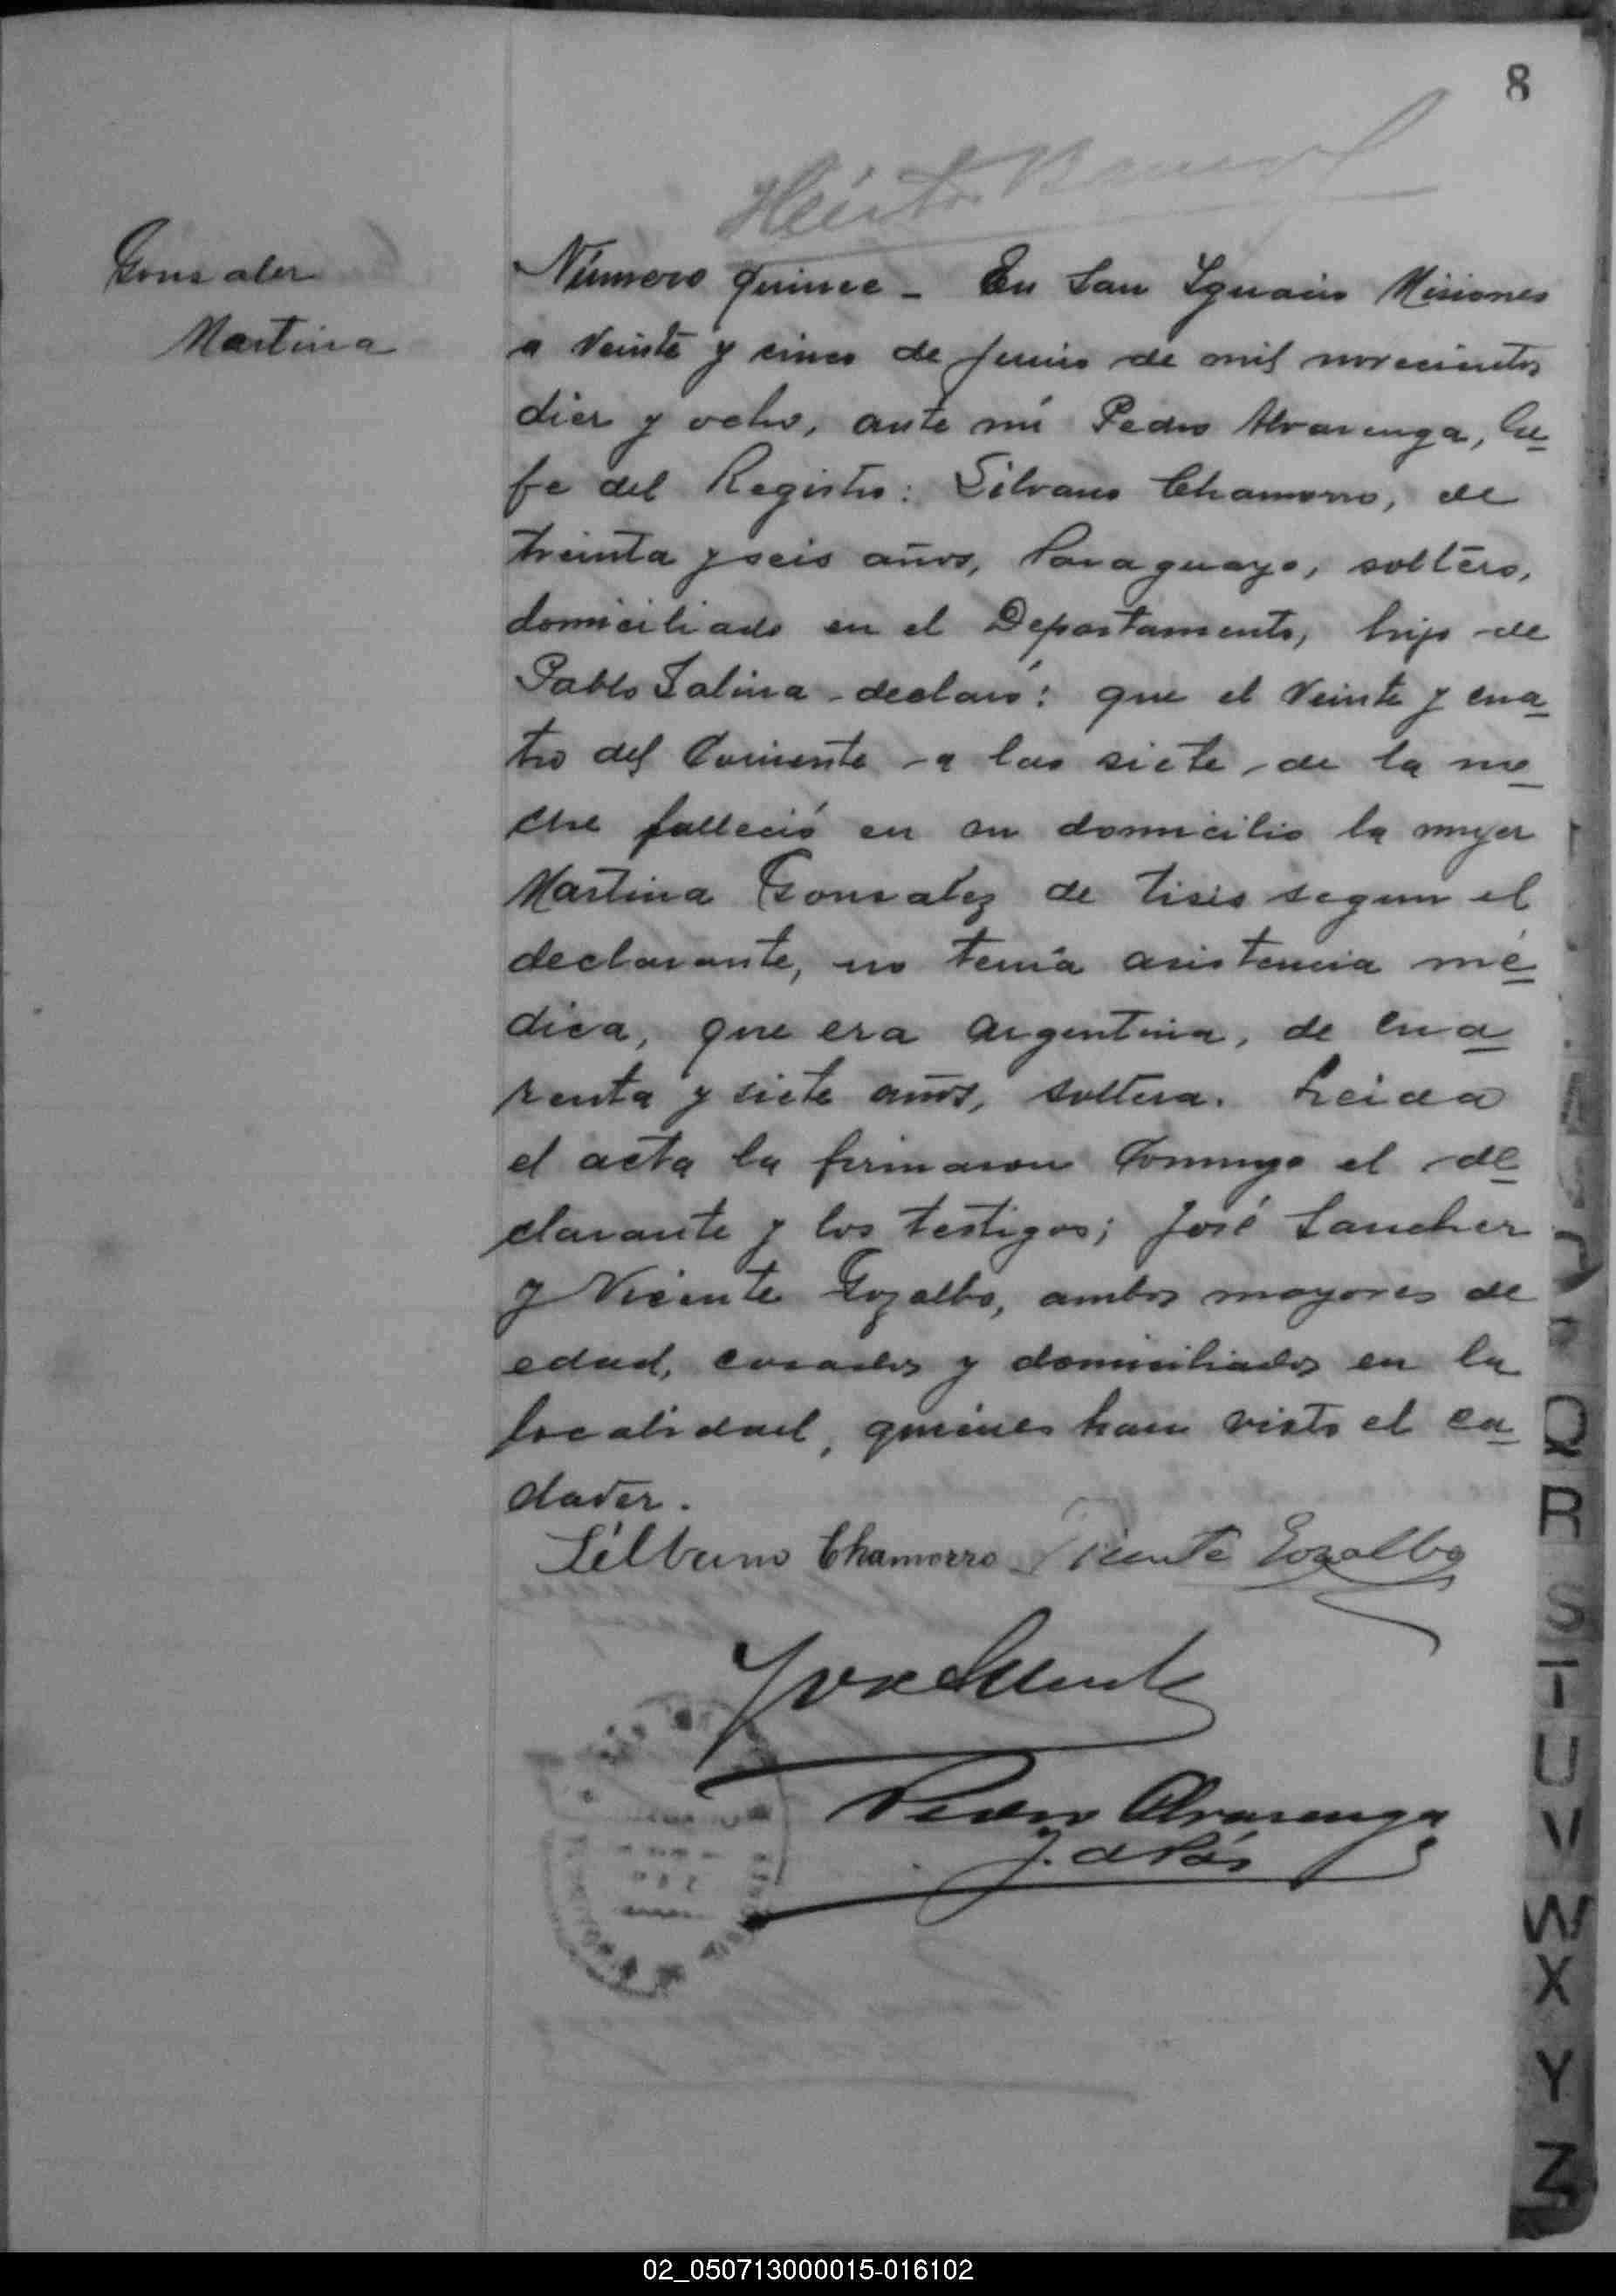 8
Gonzalez
Martina
Número quince - En San Ygnacio Misiones
a Veinte y cinco de Junio de mil novecientos
diez y ocho, ante mi Pedro Alvarenga, Ge-
fe del Registro: Silvano Chamorro, de
treinta y seis años, Paraguayo, soltero,
domiciliado en el Departamento, hijo de
Pablo Salina declaró: que el Veinte y cua-
tro del Corriente a las siete de la no-
che falleció en su domicilio la mujer
Martina Gonzalez de tisis segun el
declarante, no tenía asistencia mé-
dica, que era argentina, de cua-
renta y siete años, soltera. Leida
el acta la firmaron Conmigo el de-
clarante y los testigos; José Sanchez
y Vicente Gozalbo, ambos mayores de
edad, casados y domiciliados en la
localidad, quienes han visto el ca-
daver.
Silbano Chamorro Vicente Gozalbo
Pedro Alvarenga
J. de Paz
Q
R
S
T
U
V
W
X
Y
Z
02_050713000015-016102